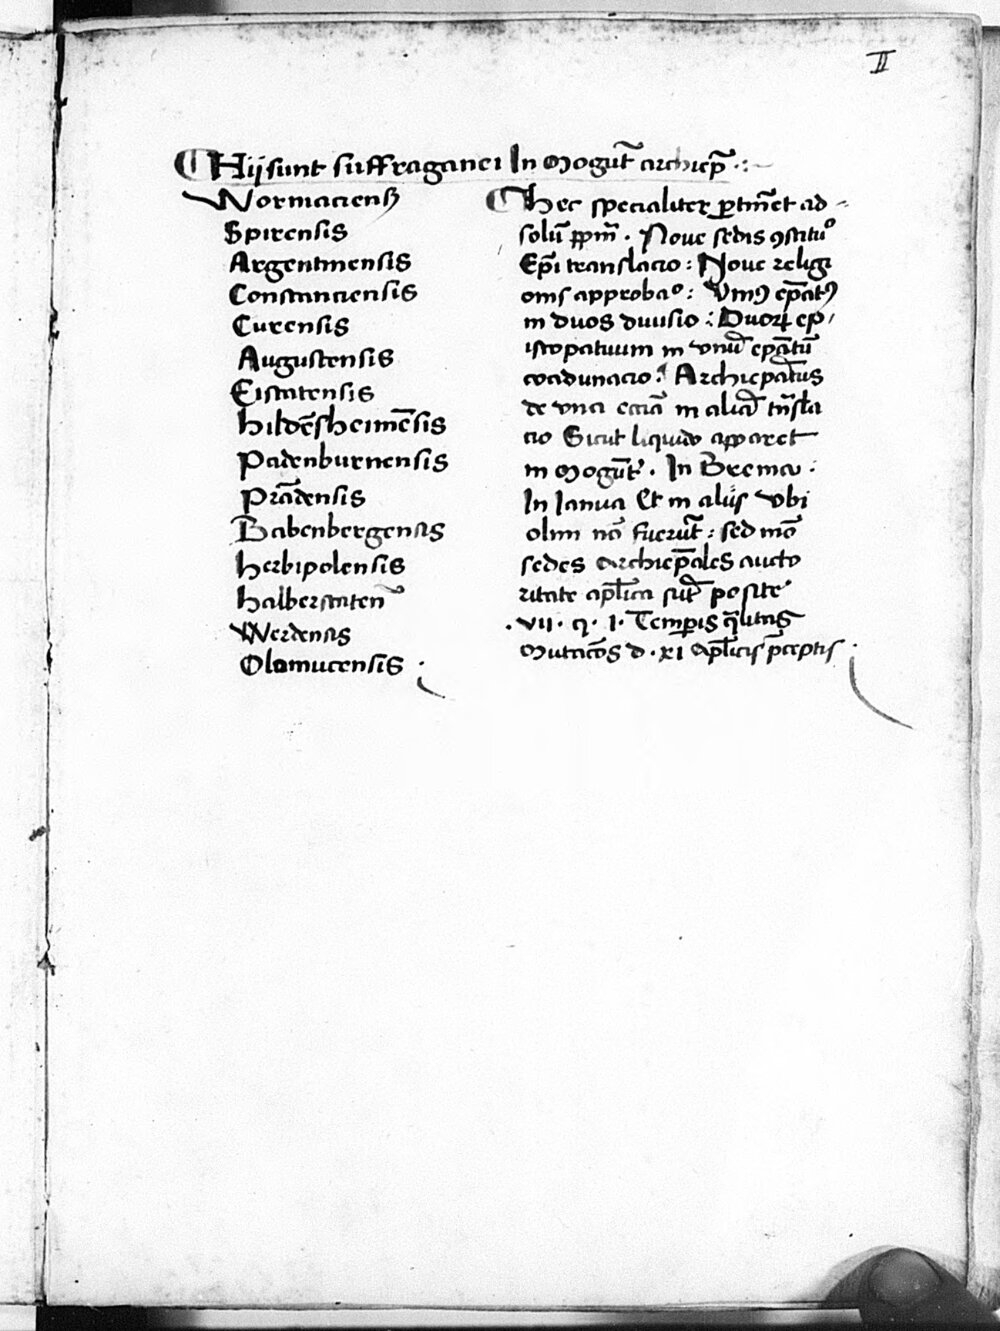 II
Hij sunt suffraganei In Mogunt̄ archiep̄
Wormaciens̄
Spirensis
Argentinensis
Constanciensis
Curensis
Augustensis
Eistatensis
hildēsheimēsis
Padenburnensis
Prādensis
Babenbergensis
herbipolensis
halberstaten̄
Werdensis
Olomucensis
hec specialiter ꝑtinēt ad
solū ppm̄. Noue sedis ꝯstituᵒ
Epī translacio: Noue religi
onis approbaᵒ: Vniꝰ ep̄atꝰ
in duos diuisio: Duoꝝ ep
iscopatuum in vnū ep̄atū
coadunacio: Archiepat̄us
de vna ecciā in aliā trn̄sla
cio Sicut liquido apparet
in Mogunt̄. In Brema:
In Ianua Et in alijs vbi
olim nō fuerūt: sed mō
sedes archiep̄ales aucto
ritate apl̄ica sūt posite
.vii. q. i. Temꝑis q̄litas
Mutacōes d. xi Apl̄icis p̄ceptis